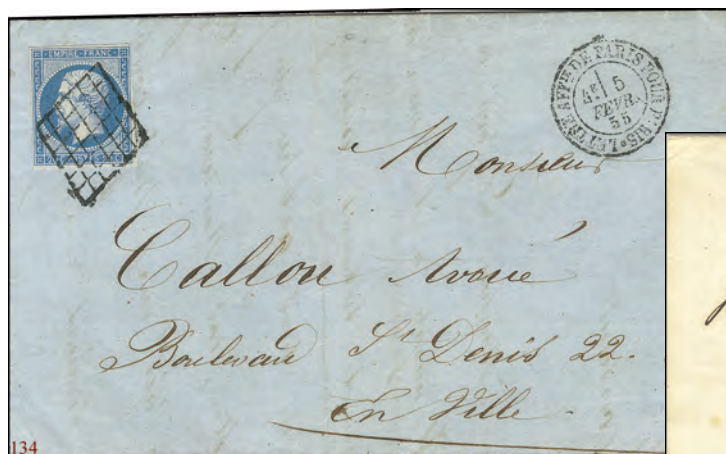 EMPIRE FRANC
LETTRE AFFIE DE PARIS POUR PARIS
4E 5
FEVR.
55
Monsieur
Callou Avoué
Boulevard St Denis 22.
En Ville
134